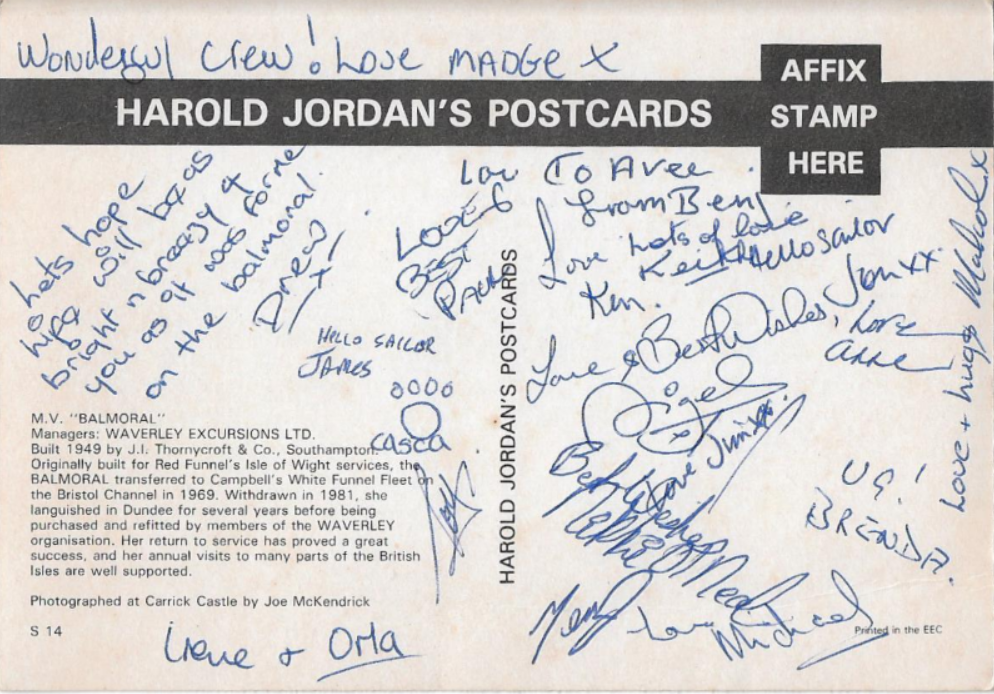 Wonderful Crew! Love MADGE X
AFFIX
STAMP
HERE
HAROLD JORDAN'S POSTCARDS
Lets hope
life will be as
bright n breezy 4
you as it was for me
on the balmoral.
Drew
X
LOVE &
BEST
HELLO SAILOR
JAMES
0000
casca
Love To
from Ben
Love Lots of love
Keith Hello Sailor
Ken.
Love & Best Wishes, Jon xx
Love
anne
Love + hugs
Malcolm x
Love Jim xx.
Best Wishes
UG!
BRENDA.
love
Michael
HAROLD JORDAN'S POSTCARDS
M.V. "BALMORAL"
Managers: WAVERLEY EXCURSIONS LTD.
Built 1949 by J.I. Thornycroft & Co., Southampton.
Originally built for Red Funnel's Isle of Wight services, the
BALMORAL transferred to Campbell's White Funnel Fleet on
the Bristol Channel in 1969. Withdrawn in 1981, she
languished in Dundee for several years before being
purchased and refitted by members of the WAVERLEY
organisation. Her return to service has proved a great
success, and her annual visits to many parts of the British
Isles are well supported.
Photographed at Carrick Castle by Joe McKendrick
S 14
Irene + Orla
Printed in the EEC